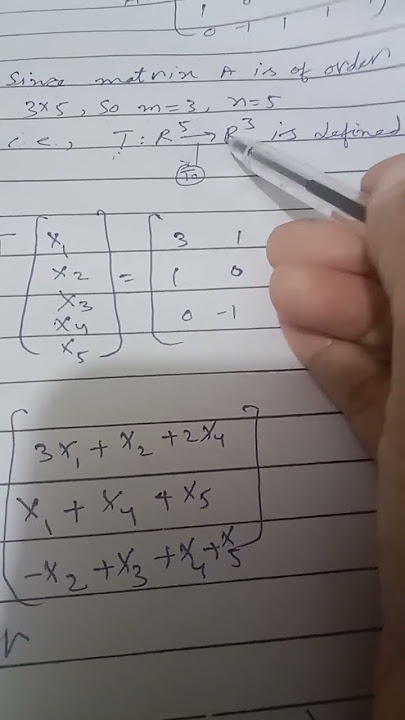 1 0 1
0 -1 1 1 1
Since matrix A is of order
3x5, so m=3, n=5
i.e., T: R^5 → R^3 is defined
To
T [x1 = [3 1
x2 1 0
x3 0 -1
x4
x5]
[3x1 + x2 + 2x4
x1 + x4 + x5
-x2 + x3 + x4 + x5]